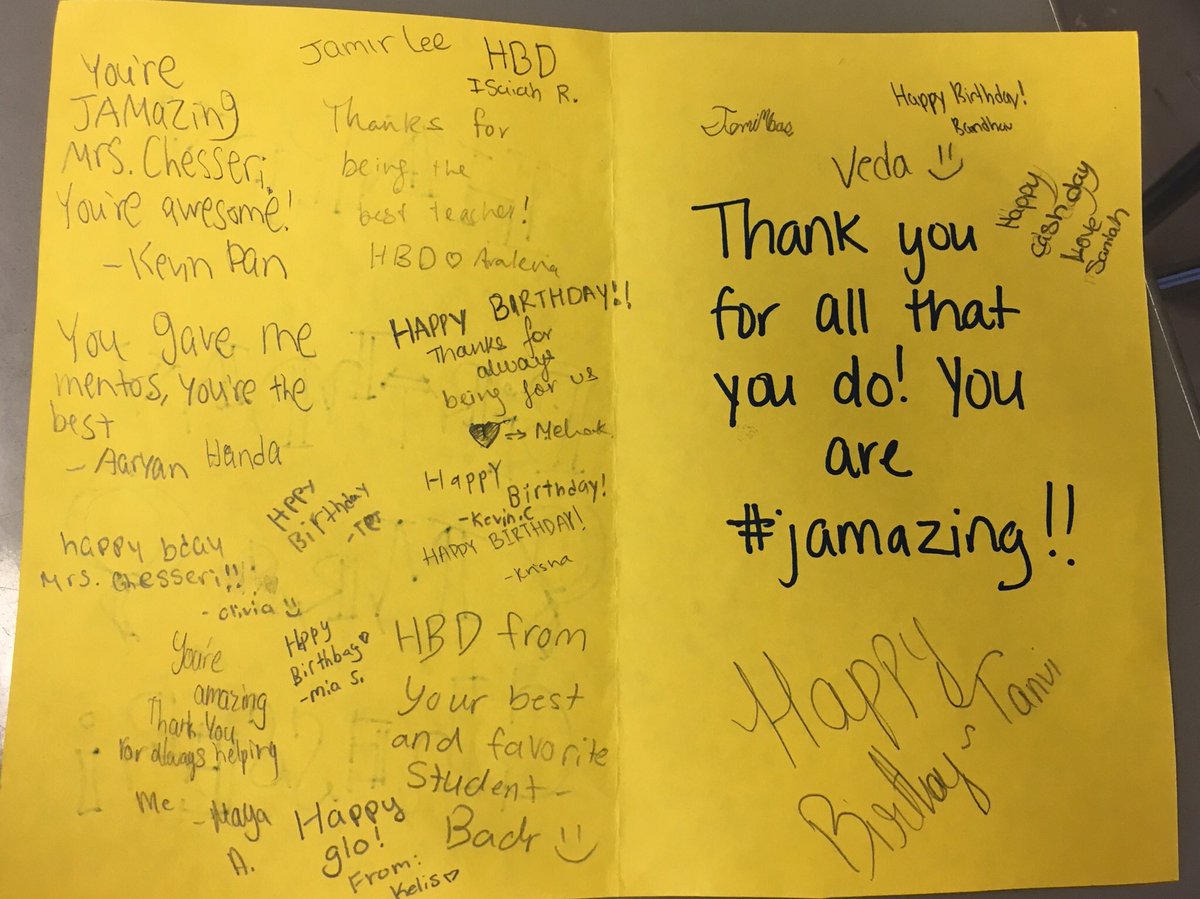 You're
JAMazing
Mrs. Chesseri.
You're awesome!
- Kevin Pan
You gave me
mentos, You're the
best
- Aaryan Handa
happy bday
Mrs. Chesseri!!
- Olivia
You're
amazing
Thank You
For always helping
Me
- Maya
A.
Jamir Lee
HBD
Isaiah R.
Thanks for
being the
best teacher!
HBD ♡
HAPPY BIRTHDAY!!
Thanks for
always
being for us
♥ => Mehak
Happy
Birthday!
- Kevin.C
HAPPY BIRTHDAY!
- Krisha
Happy
Birthday
Happy
Birthbay
- Mia S.
HBD from
Your best
and favorite
Student -
Badr
Happy
glo!
From:
Kelis ♡
Happy Birthday!
Bandhav
Veda
Happy
cash day
Love
Saniah
Thank you
for all that
you do! You
are
#jamazing!!
Happy
Birthday
~ Tanvi